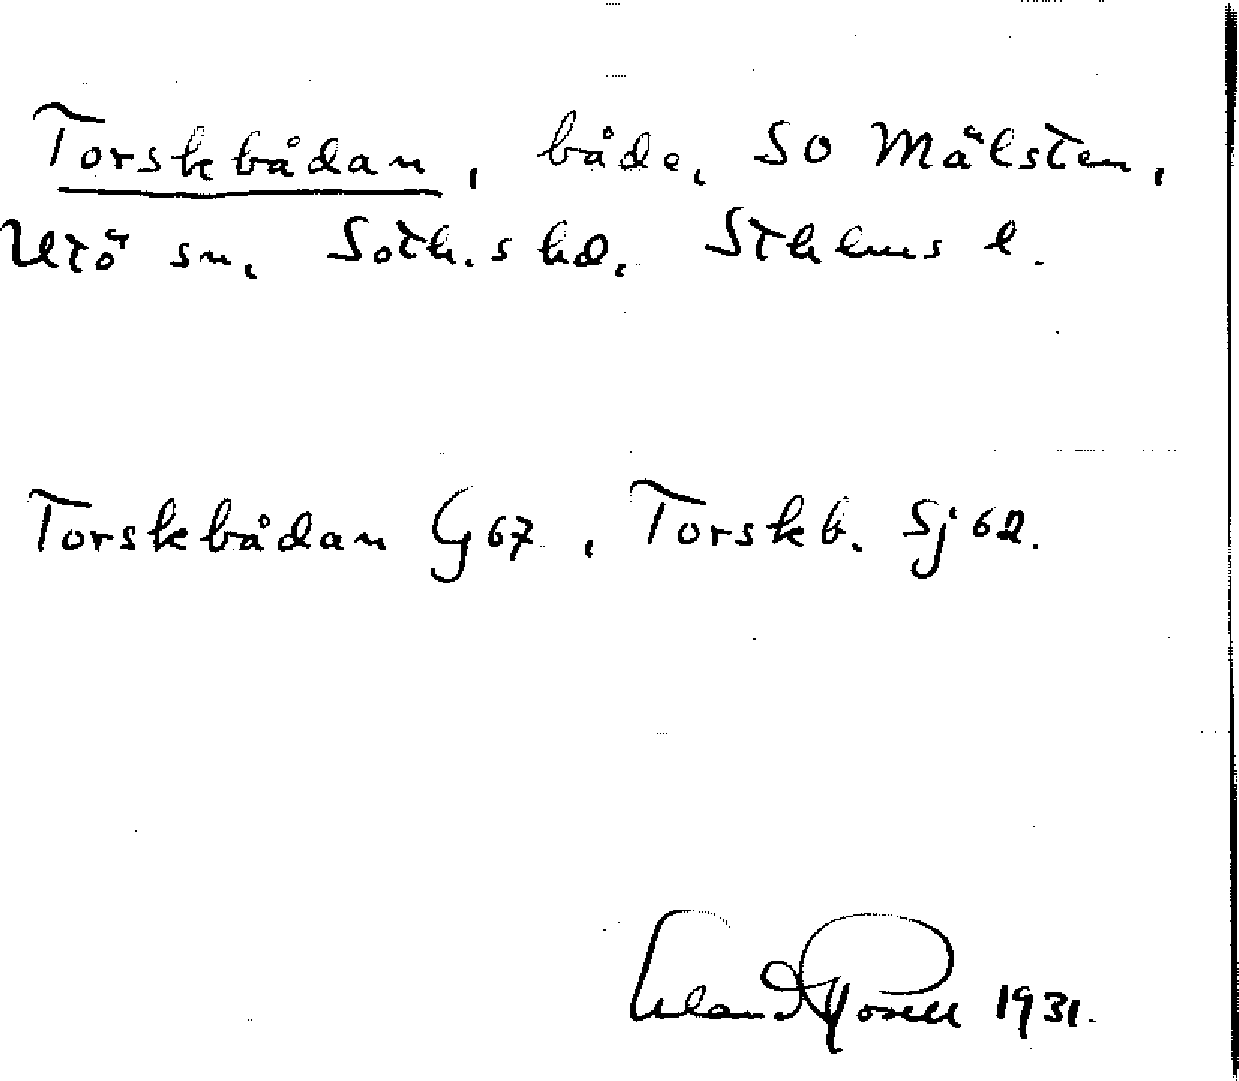 Torskbådan, både, SO Mälsten,
Utö sn, Soth.s hd, Sthlms l.
Torskbådan G 67, Torskb. Sj 62.
Erland Rosell 1931.